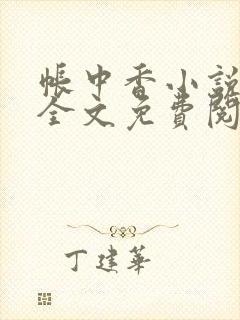 帐中香小説
全文免費閱
丁建華